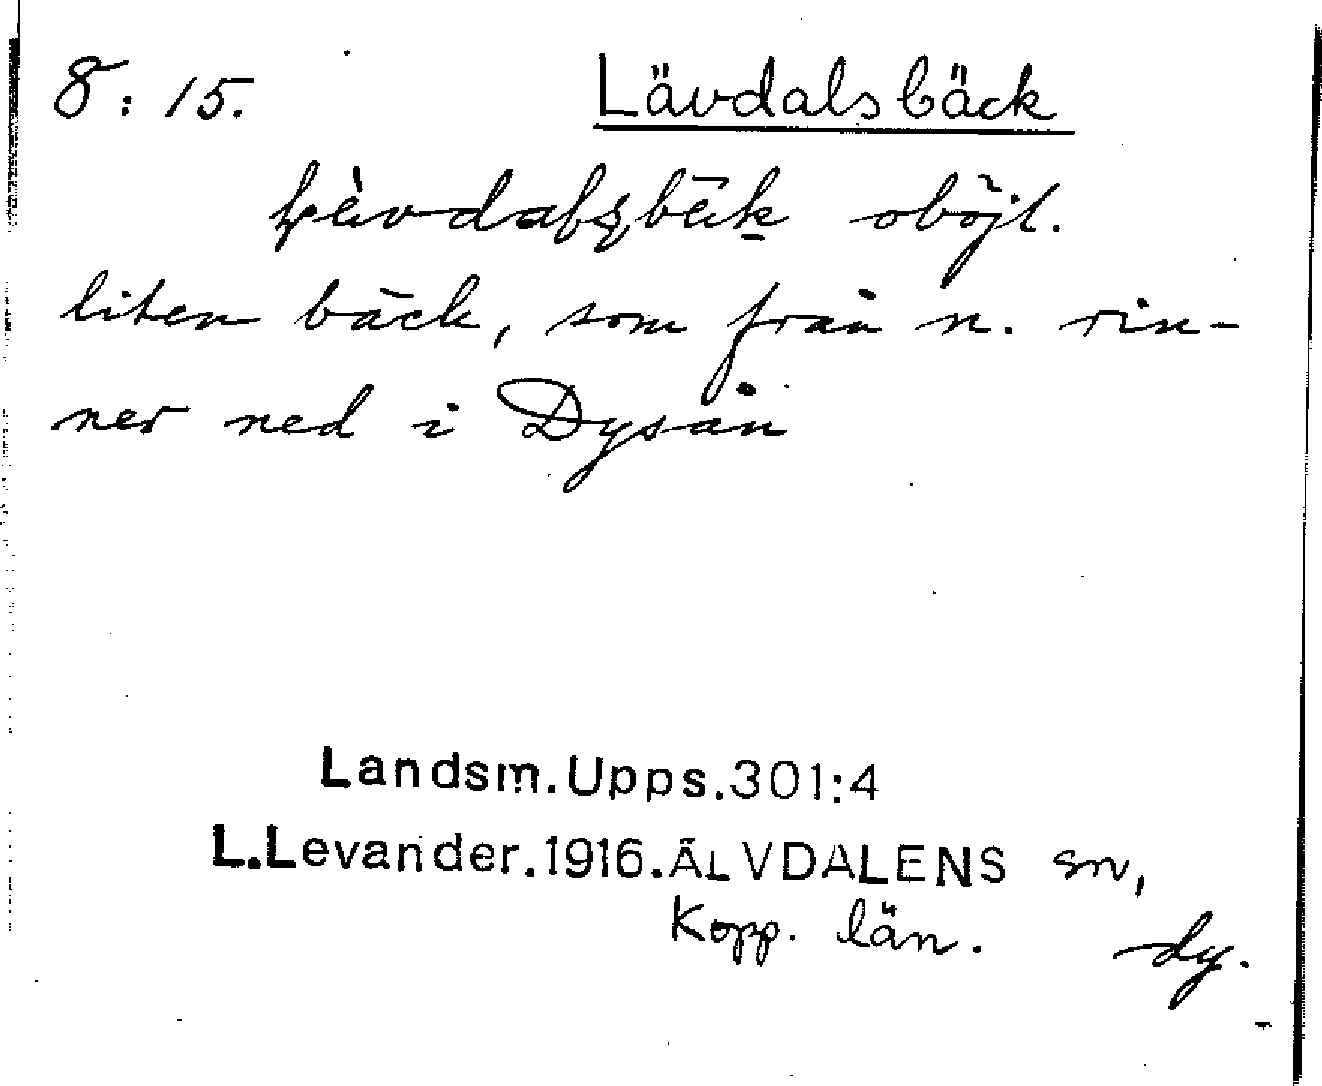 8:15.
Lävdalsbäck
oböjl.
liten bäck, som från n. rin-
ner ned i Dysån
Landsm.Upps.301:4
L.Levander.1916.ÄLVDALENS sn,
Kopp. län.
dy.